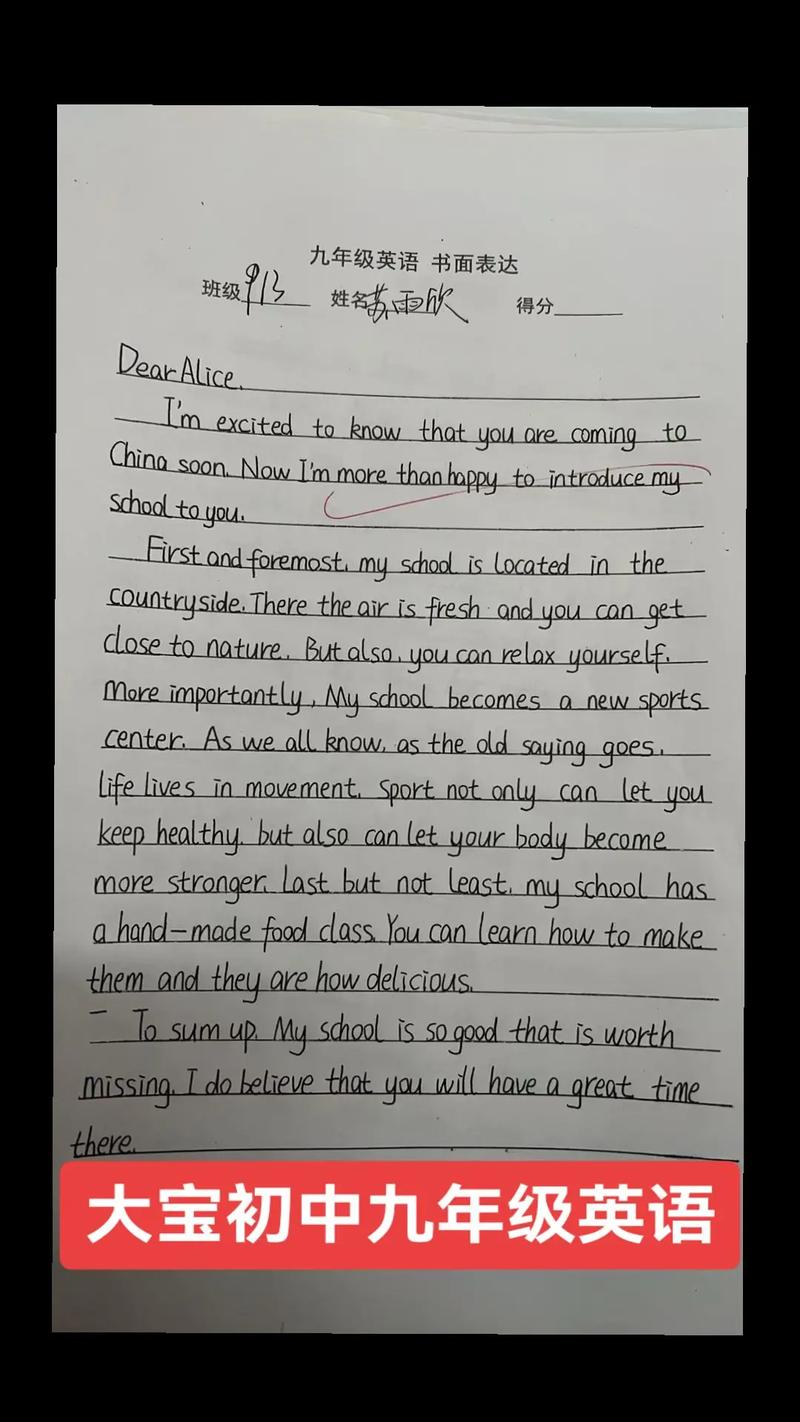 九年级英语 书面表达
班级 913 姓名 苏雨欣 得分
Dear Alice.
I'm excited to know that you are coming to
China soon. Now I'm more than happy to introduce my
school to you.
First and foremost, my school is located in the
countryside. There the air is fresh and you can get
close to nature. But also, you can relax yourself.
More importantly, My school becomes a new sports
center. As we all know, as the old saying goes,
life lives in movement. Sport not only can let you
keep healthy, but also can let your body become
more stronger. Last but not least, my school has
a hand-made food class. You can learn how to make
them and they are how delicious.
To sum up, My school is so good that is worth
missing. I do believe that you will have a great time
there.
大宝初中九年级英语